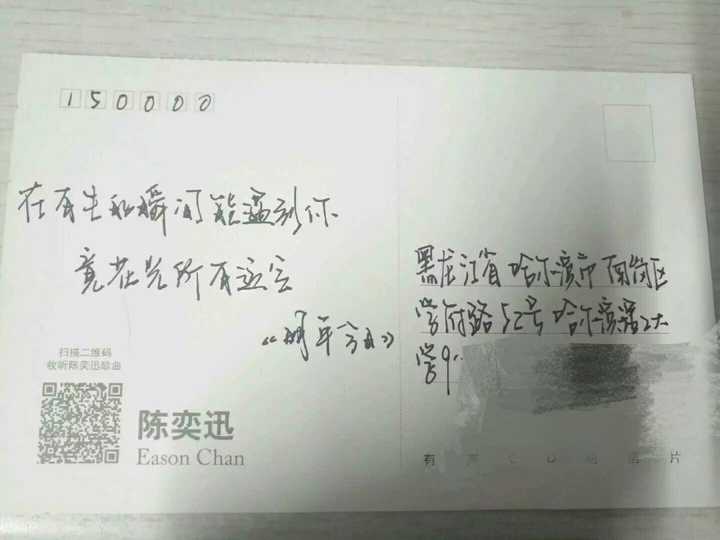 150000
在有生的瞬间能遇到你
竟花光所有运气
《明年今日》
黑龙江省哈尔滨市南岗区
学府路52号哈尔滨理工大
学
扫描二维码
收听陈奕迅歌曲
陈奕迅
Eason Chan
有 片